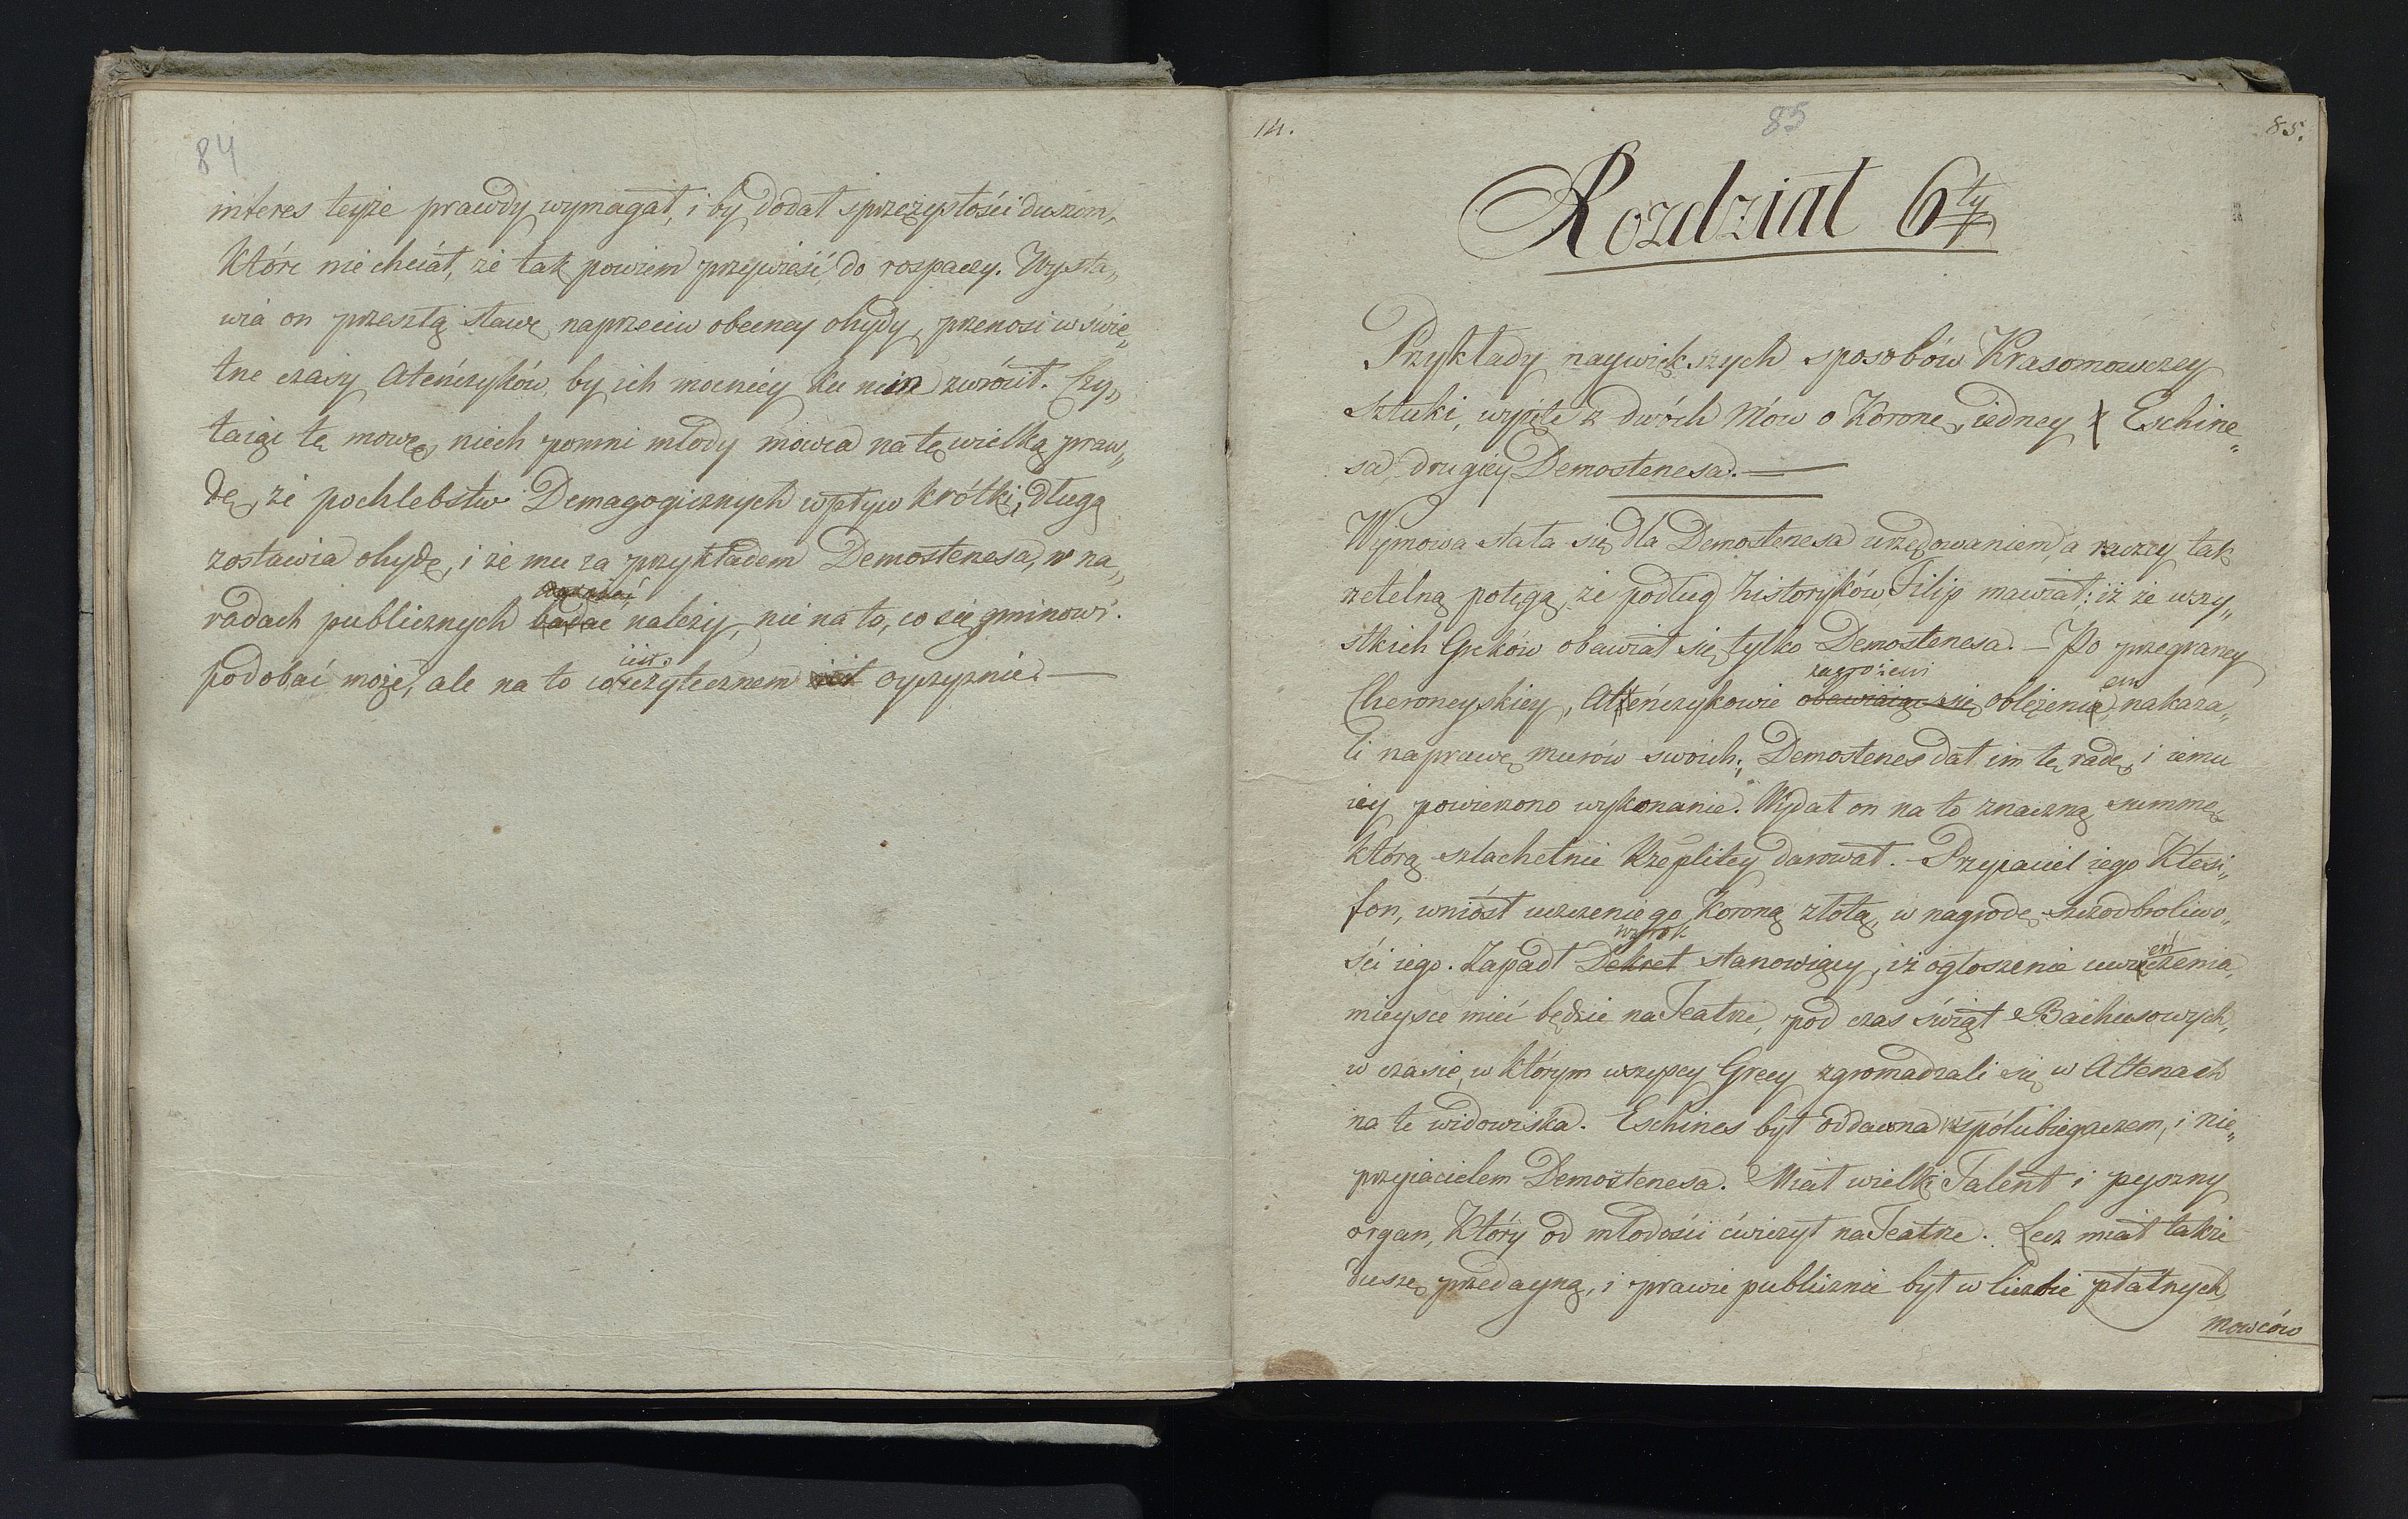 84
interes teyże prawdy wymagał, i by dodał sprężystości duszom,
które nie chciał, że tak powiem przywieść do rospaczy. Wysta„
wia on przeszłą sławę naprzeciw obecney ohydy, przenosi w świe„
tne czasy Ateńczyków, by ich mocniéy ku nim zwrócił. Czy„
taiąc tę mowę, niech pomni młody mówca na tę wielką praw„
dę, że pochlebstw Demagogicznych wpływ krótki, długą
zostawia ohydę, i że mu za przykładem Demostenesa, w na„
radach publicznych badać należy, nie na to, co się gminowi
podobać może, ale na to co iest użytecznem iest oyczyznie. —
14.
85
85.
Rozdział 6ty
Przykłady naywiększych sposobów Krasomowczey
sztuki, wyięte z dwóch Mów o Koronę, iedney z Eschine„
sa, drugiéy Demostenesa. —
Wymowa stała się dla Demostenesa urzędowaniem, a raczey tak
rzetelną potęgą, że podług historyków, Filip mawiał: iż ze wszy„
stkich Greków obawiał się tylko Demostenesa. — Po przegraney
Cheroneyskiey, Atteńczykowie obawiaiąc się zagrożeni oblężeniem, nakaza„
li naprawę murów swoich; Demostenes dał im tę radę, i iemu
iey powierzono wykonanie. Wydał on na to znaczną summę,
którą szlachetnie Rzeplitey darował. — Przyiaciel iego Ktesi„
fon, wniósł uczczenie go Koroną złotą, w nagrodę szczodrobliwo„
ści iego. Zapadł Dekret wyrok stanowiący, iż ogłoszenie uwieńczenia,
mieysce mieć będzie na Teatrze, pod czas świąt Bachusowych,
w czasie, w którym wszyscy Grecy zgromadzali się w Attenach
na te widowiska. Eschines był oddawna wspólubiegaczem, i nie„
przyiacielem Demostenesa. Miał wielki Talent i pyszny
organ, który od młodości ćwiczył na Teatrze. Lecz miał także
duszę przedayną, i prawie publicznie był w liczbie płatnych
mowców